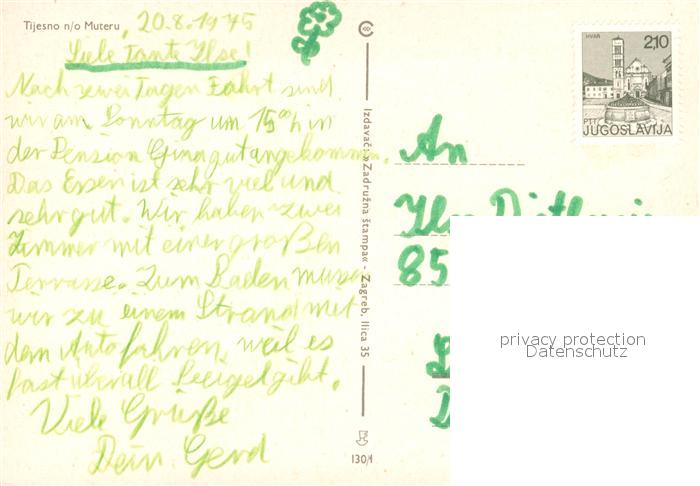 Tijesno n/o Muteru, 20.8.1975
Liebe Tante Ilse!
Nach zwei Tagen Fahrt sind
wir am Sonntag um 15ºº h in
der Pension Gina gut angekomm.
Das Essen ist sehr viel und
sehr gut. Wir haben zwei
Zimmer mit einer großen
Terrasse. Zum Baden müssen
wir zu einem Strand mit
dem Auto fahren, weil es
fast überall Seeigel gibt.
Viele Grüße
Dein Gerd
Izdavač: »Zadružna štampa« - Zagreb, Ilica 35
130/1
HVAR
2,10
PTT
JUGOSLAVIJA
An
Ilse
85
privacy protection
Datenschutz